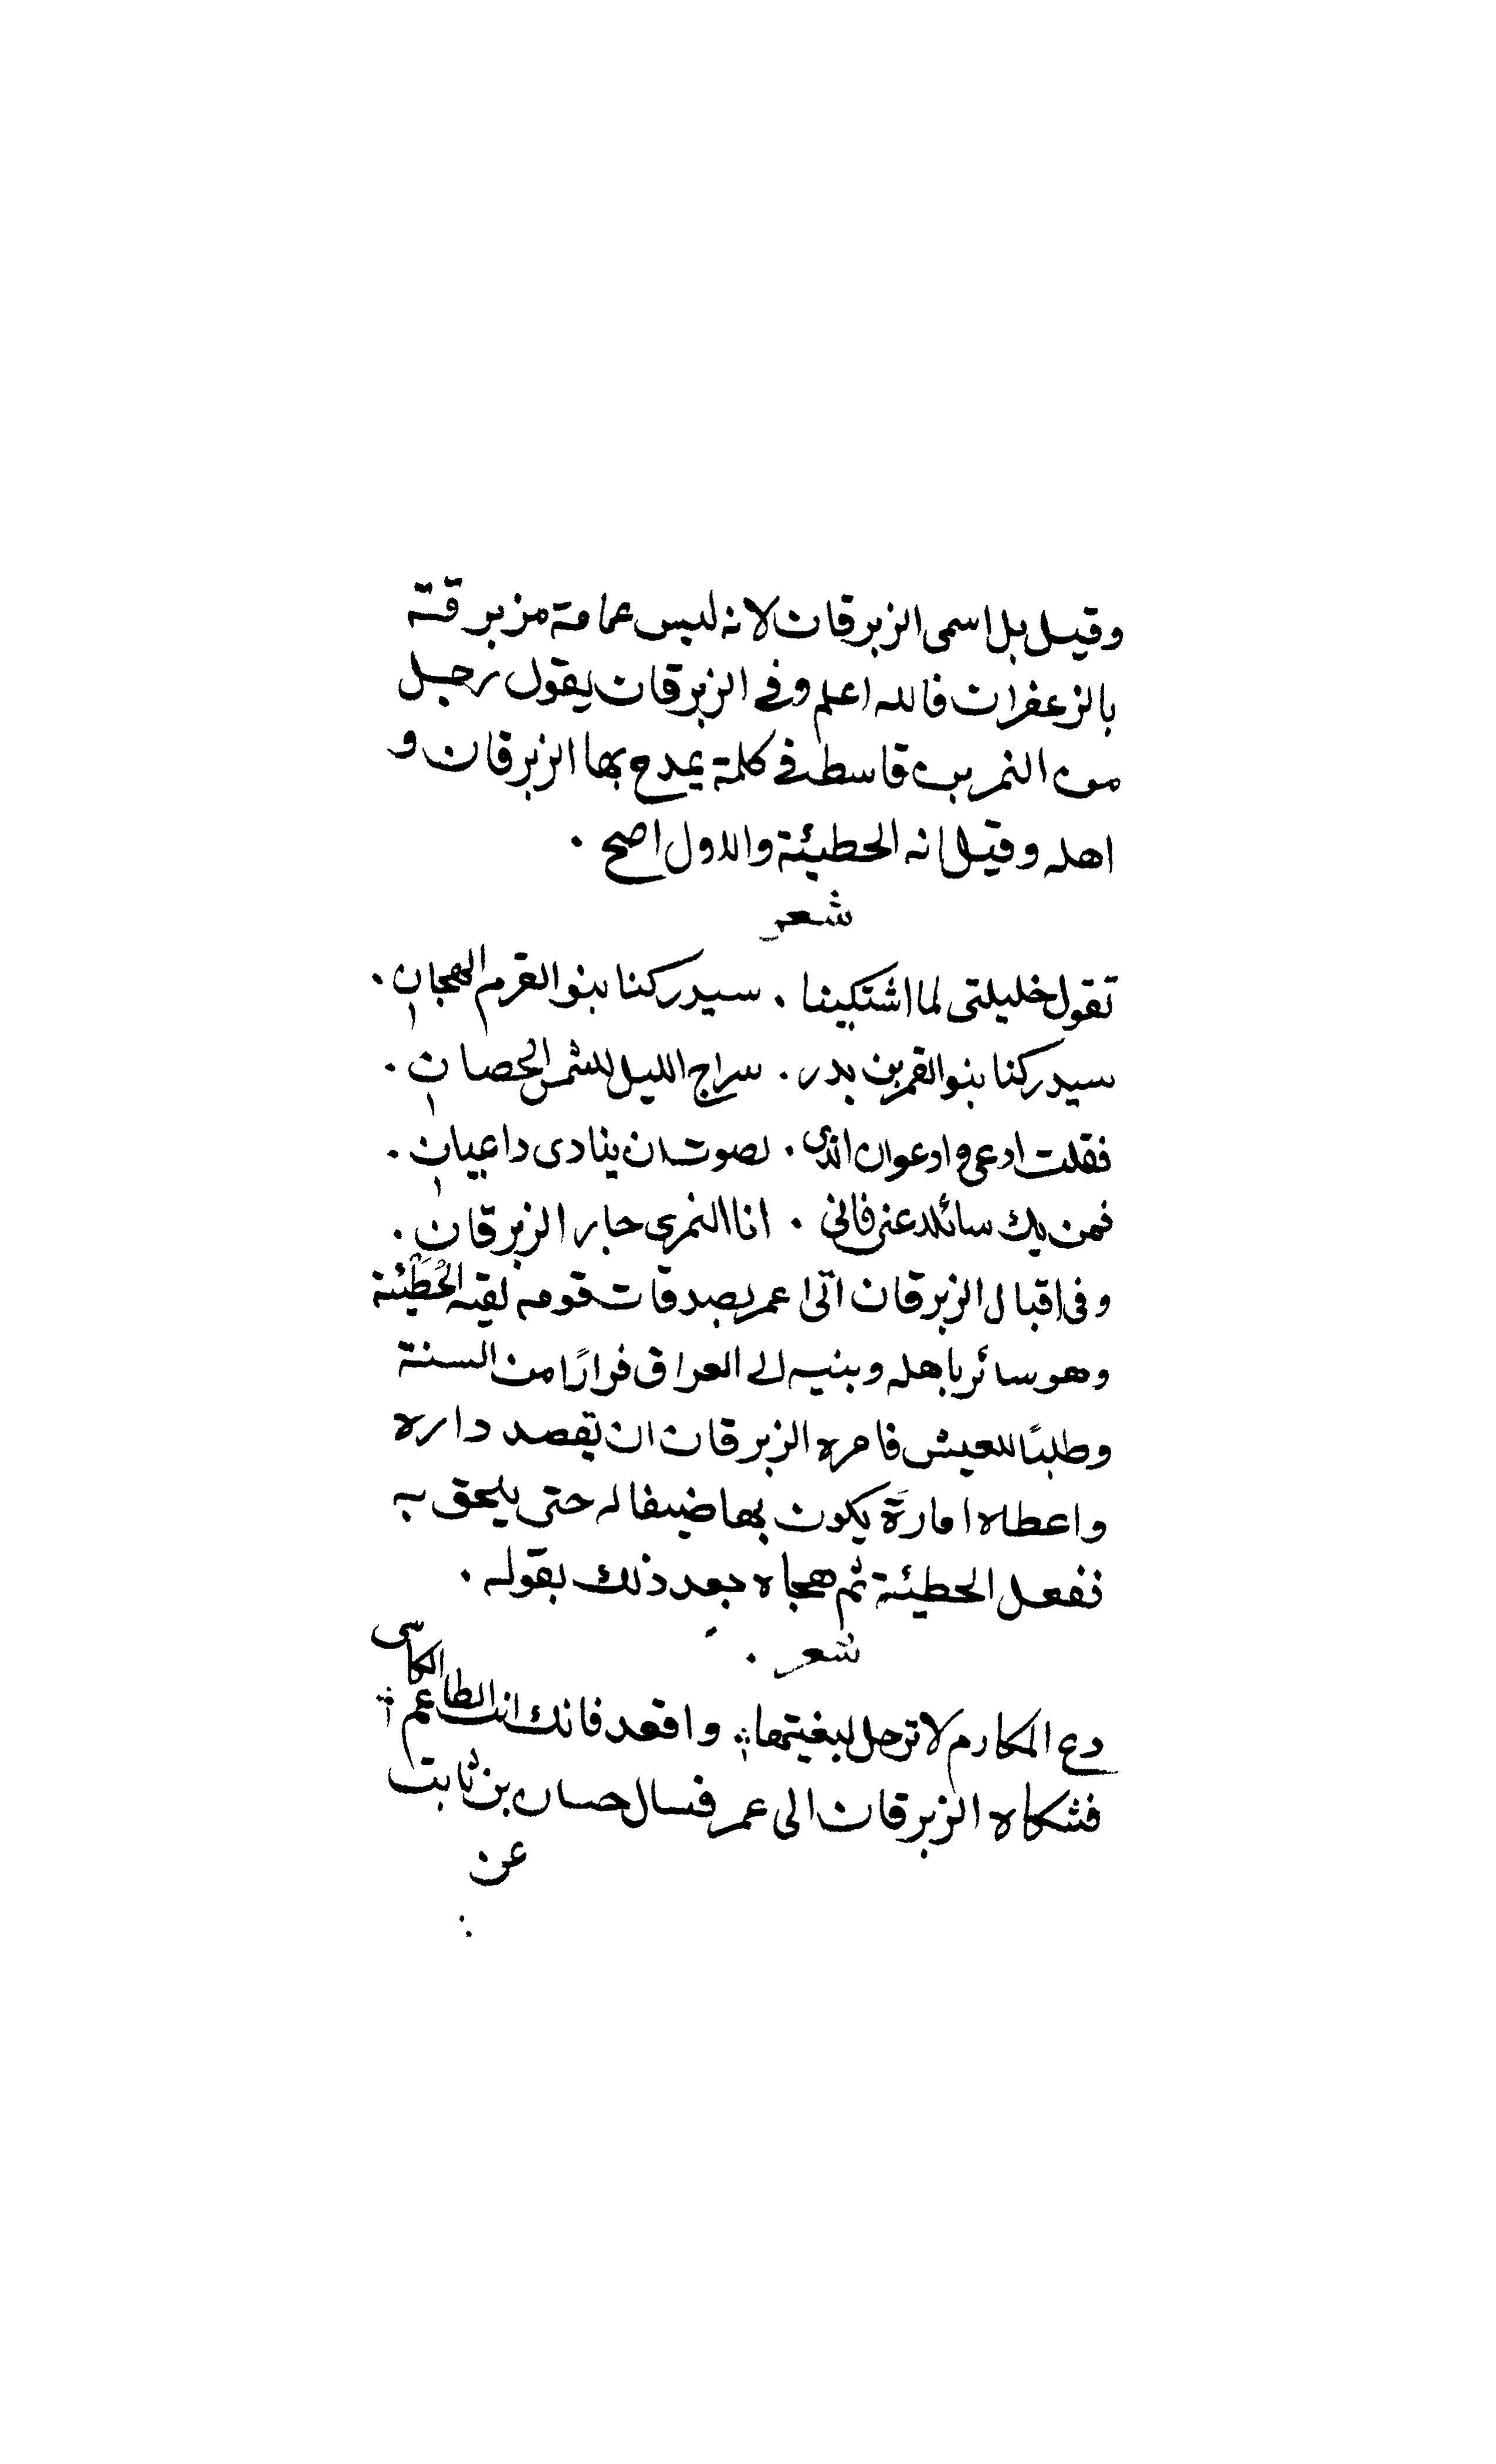 وقيل بل اسمى الزبرقان لانه لبس عمامة مزبرقة
بالزعفران فالله اعلم وفى الزبرقان يقول رجل
من النمر بن قاسط فى كلمة يمدح بها الزبرقان و
اهله وقيل انه الحطيئة والاول اصح ٠
شعر
تقول خليلتى لما اشتكينا ٠ سيدركنا بنو القرم الهجان ٠
سيدركنا بنو القمر بن بدر ٠ سراج الليل للشمس الحصان ٠
فقلت ادعى وادعوان اندى ٠ لصوت ان ينادى داعيان ٠
فمن يك سائلا عنى فانى ٠ انا النمرى جار الزبرقان ٠
وفى اقبال الزبرقان اتى عمر بصدقات قومه لقيه الحُطَيْئة
وهو سائر باهله وبنيه الى العراق فرارًا من السنة
وطلبًا للعيش فامره الزبرقان ان يقصد داره
واعطاه امارَة يكون بها ضيفا له حتى يلحق به
ففعل الحطيئة ثم هجاه بعد ذلك بقوله ٠
شعر ٠
دع المكارم لا ترحل لبغيتها ؞ واقعد فانك انت الطاعم الكاسى ؞
فشكاه الزبرقان الى عمر فسال حسان بن ثابت
عن